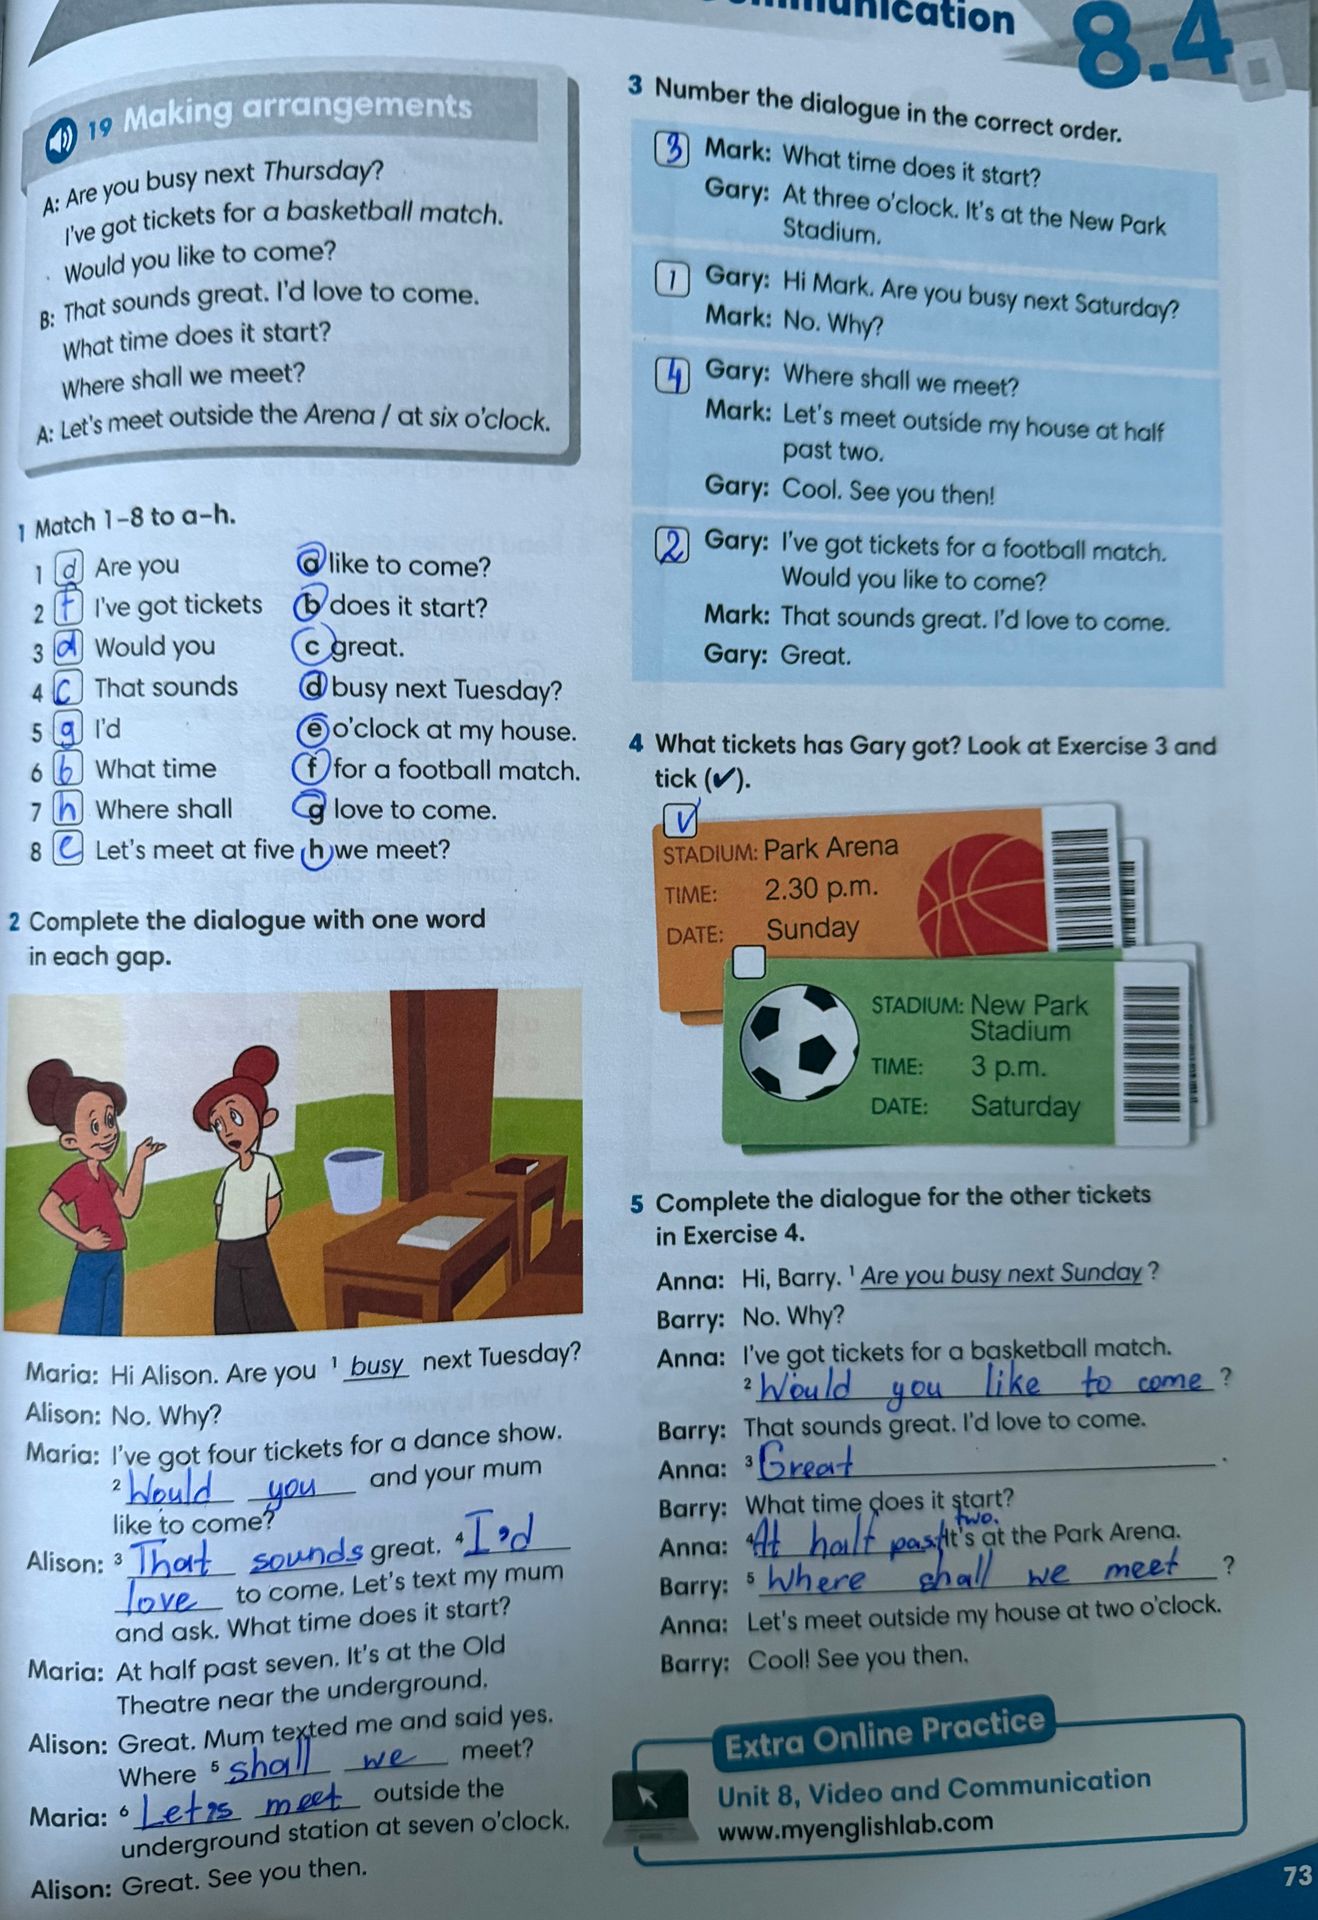 8.4
19 Making arrangements
A: Are you busy next Thursday?
I've got tickets for a basketball match.
Would you like to come?
B: That sounds great. I'd love to come.
What time does it start?
Where shall we meet?
A: Let's meet outside the Arena / at six o'clock.
1 Match 1–8 to a–h.
1 d Are you
2 f I've got tickets
3 a Would you
4 c That sounds
5 g I'd
6 b What time
7 h Where shall
8 e Let's meet at five
a like to come?
b does it start?
c great.
d busy next Tuesday?
e o'clock at my house.
f for a football match.
g love to come.
h we meet?
2 Complete the dialogue with one word
in each gap.
Maria: Hi Alison. Are you 1 busy next Tuesday?
Alison: No. Why?
Maria: I've got four tickets for a dance show.
2 Would you and your mum
like to come?
Alison: 3 That sounds great. 4 I'd
love to come. Let's text my mum
and ask. What time does it start?
Maria: At half past seven. It's at the Old
Theatre near the underground.
Alison: Great. Mum texted me and said yes.
Where 5 shall we meet?
Maria: 6 Let's meet outside the
underground station at seven o'clock.
Alison: Great. See you then.
3 Number the dialogue in the correct order.
3 Mark: What time does it start?
Gary: At three o'clock. It's at the New Park
Stadium.
1 Gary: Hi Mark. Are you busy next Saturday?
Mark: No. Why?
4 Gary: Where shall we meet?
Mark: Let's meet outside my house at half
past two.
Gary: Cool. See you then!
2 Gary: I've got tickets for a football match.
Would you like to come?
Mark: That sounds great. I'd love to come.
Gary: Great.
4 What tickets has Gary got? Look at Exercise 3 and
tick (✔).
✓
STADIUM: Park Arena
TIME: 2.30 p.m.
DATE: Sunday
STADIUM: New Park
Stadium
TIME: 3 p.m.
DATE: Saturday
5 Complete the dialogue for the other tickets
in Exercise 4.
Anna: Hi, Barry. 1 Are you busy next Sunday ?
Barry: No. Why?
Anna: I've got tickets for a basketball match.
2 Would you like to come ?
Barry: That sounds great. I'd love to come.
Anna: 3 Great .
Barry: What time does it start?
two.
Anna: 4 At half past It's at the Park Arena.
Barry: 5 Where shall we meet ?
Anna: Let's meet outside my house at two o'clock.
Barry: Cool! See you then.
Extra Online Practice
Unit 8, Video and Communication
www.myenglishlab.com
73